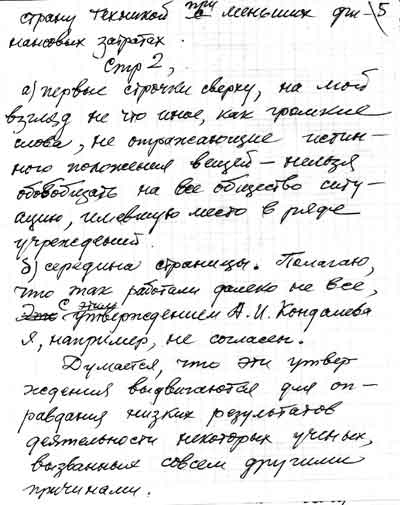 при
страну техникой с меньших фи- 5
нансовых затратах.
Стр 2,
а) первые строчки сверху, на мой
взгляд не что иное, как громкие
слова, не отражающие истин-
ного положения вещей – нельзя
обобобщать на все общество ситу-
ацию, имевшую место в ряде
учреждений.
б) середина страницы. Полагаю,
что так работали далеко не все,
Это с этим утверждением А.И. Кондалева
я, например, не согласен.
Думается, что эти утвер
ждения выдвигаются для оп-
равдания низких результатов
деятельности некоторых ученых,
вызванных совсем другими
причинами.